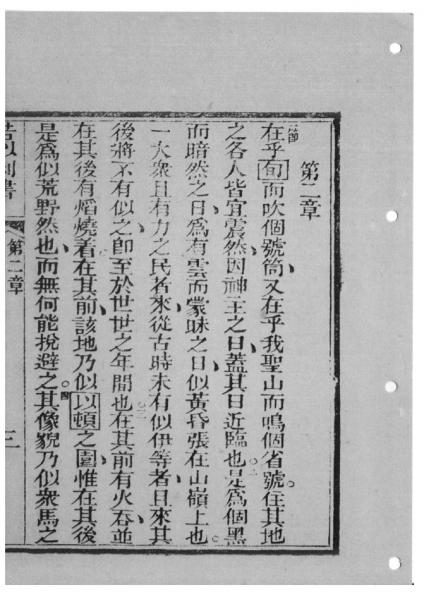 第二章
一節在乎旬而吹個號筒又在乎我聖山而鳴個省號。住其地
之各人皆宜震然因神主之日蓋其日近臨也。二是爲個黑
而暗然之日爲有雲而蒙昧之日似黃昏張在山嶺上也。
一大衆且有力之民者來從古時未有似伊等者日來其
後將不有似之卽至於世世之年間也三在其前有火吞並
在其後有熖燒着在其前該地乃似以頓之園惟在其後
是爲似荒野然也而無何能挩避之。四其像貌乃似衆馬之
若以利書
第二章
三